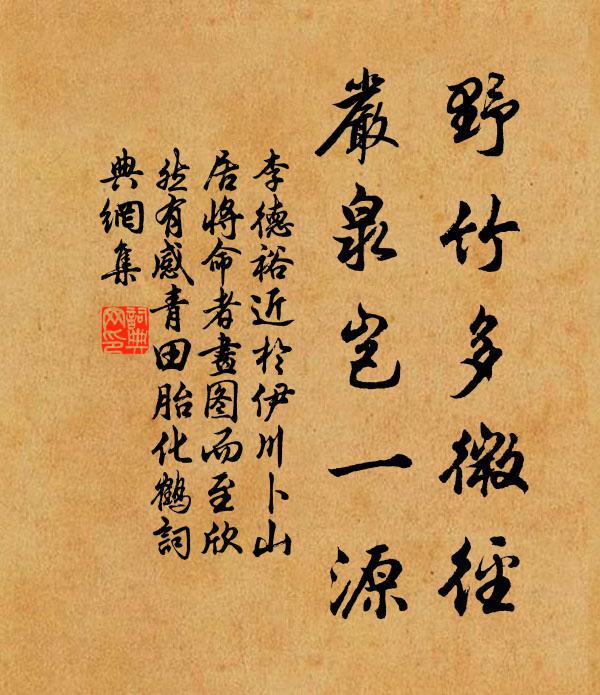 野竹多微徑
嚴泉岂一源
李德裕近於伊川卜山
居將命者畫图而至欣
然有感青田胎化鶴詞
典網集
詞典
网印